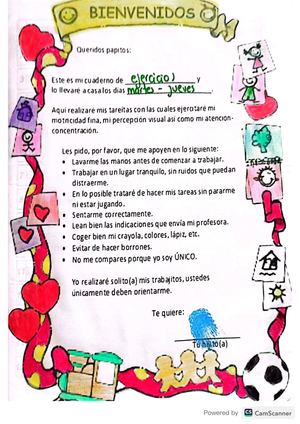 BIENVENIDOS
Queridos papitos:
Este es mi cuaderno de ejercicios y
lo llevaré a casa los días martes - jueves.
Aquí realizaré mis tareitas con las cuales ejercitaré mi
motricidad fina, mi percepción visual así como mi atención-
concentración.
Les pido, por favor, que me apoyen en lo siguiente:
• Lavarme las manos antes de comenzar a trabajar.
• Trabajar en un lugar tranquilo, sin ruidos que puedan
distraerme.
• En lo posible trataré de hacer mis tareas sin pararme
ni estar jugando.
• Sentarme correctamente.
• Lean bien las indicaciones que envía mi profesora.
• Coger bien mi crayola, colores, lápiz, etc.
• Evitar de hacer borrones.
• No me compares porque yo soy ÚNICO.
Yo realizaré solito(a) mis trabajitos, ustedes
únicamente deben orientarme.
Te quiere:
Tu hijito(a)
Powered by CS CamScanner